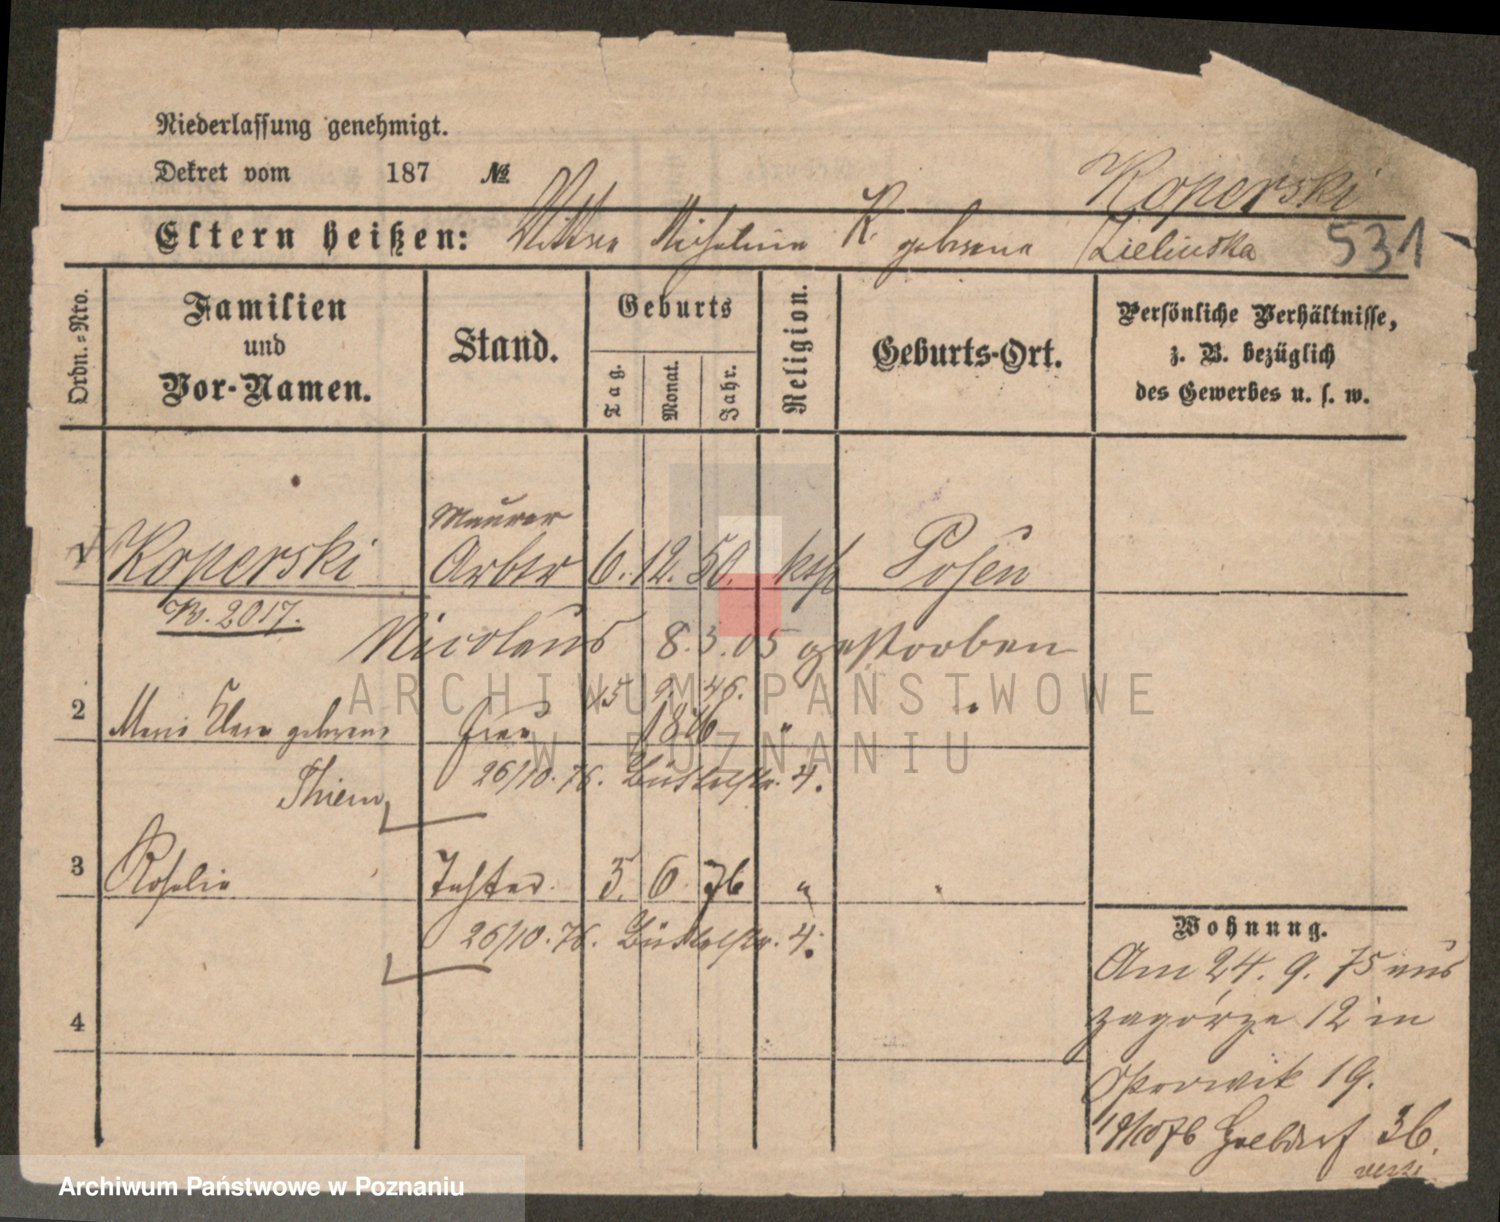 Niederlassung genehmigt.
Dekret vom 187 №
Koperski
Eltern heißen: Wittwe Michalina K. geborene Zielinska 531
Ordn.-Nro.
Familien
und
Vor-Namen.
Stand.
Geburts
Tag.
Monat.
Jahr.
Religion.
Geburts-Ort.
Persönliche Verhältnisse,
z. B. bezüglich
des Gewerbes u. s. w.
Maurer
1 Koperski Arbtr 6. 12. 50. kath Posen
2017.
Nicolaus 8. 3. 05 gestorben
15 9. 46.
2 Maria Clara geborene Frau 1846 " "
Thiem
26/10. 76. Büttelstr. 4.
3 Rosalie Tochter 5. 6. 76 " "
26/10. 76. Büttelstr. 4.
4
Wohnung.
Am 24. 9. 75 aus
Zagórze 12 in
Ostrowek 19.
36.
ARCHIWUM PAŃSTWOWE
W POZNANIU
Archiwum Państwowe w Poznaniu